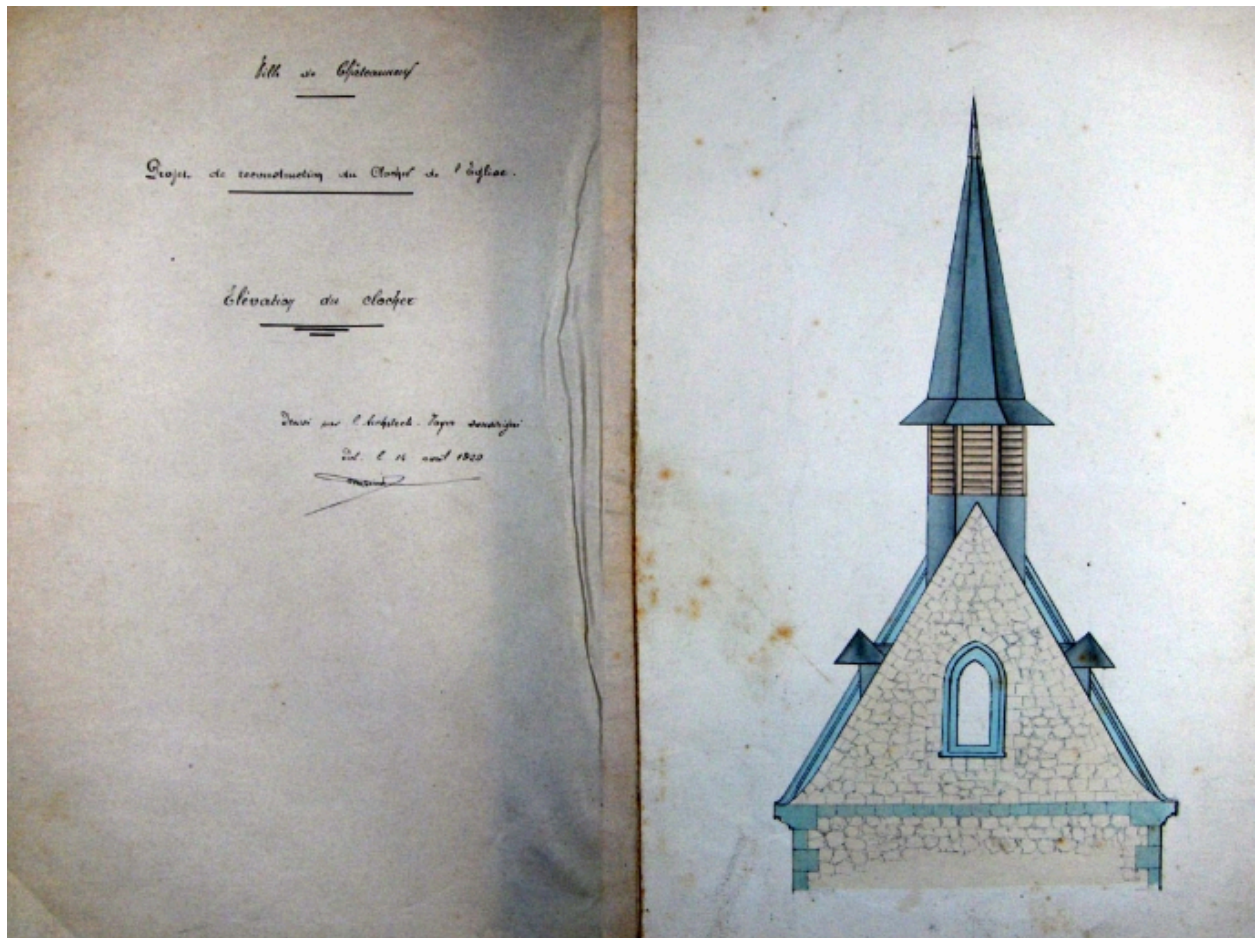 Ville de Châteauneuf
Projet de reconstruction du Clocher de l'Eglise.
Elévation du clocher
l'Architecte-Voyer soussigné
le 14